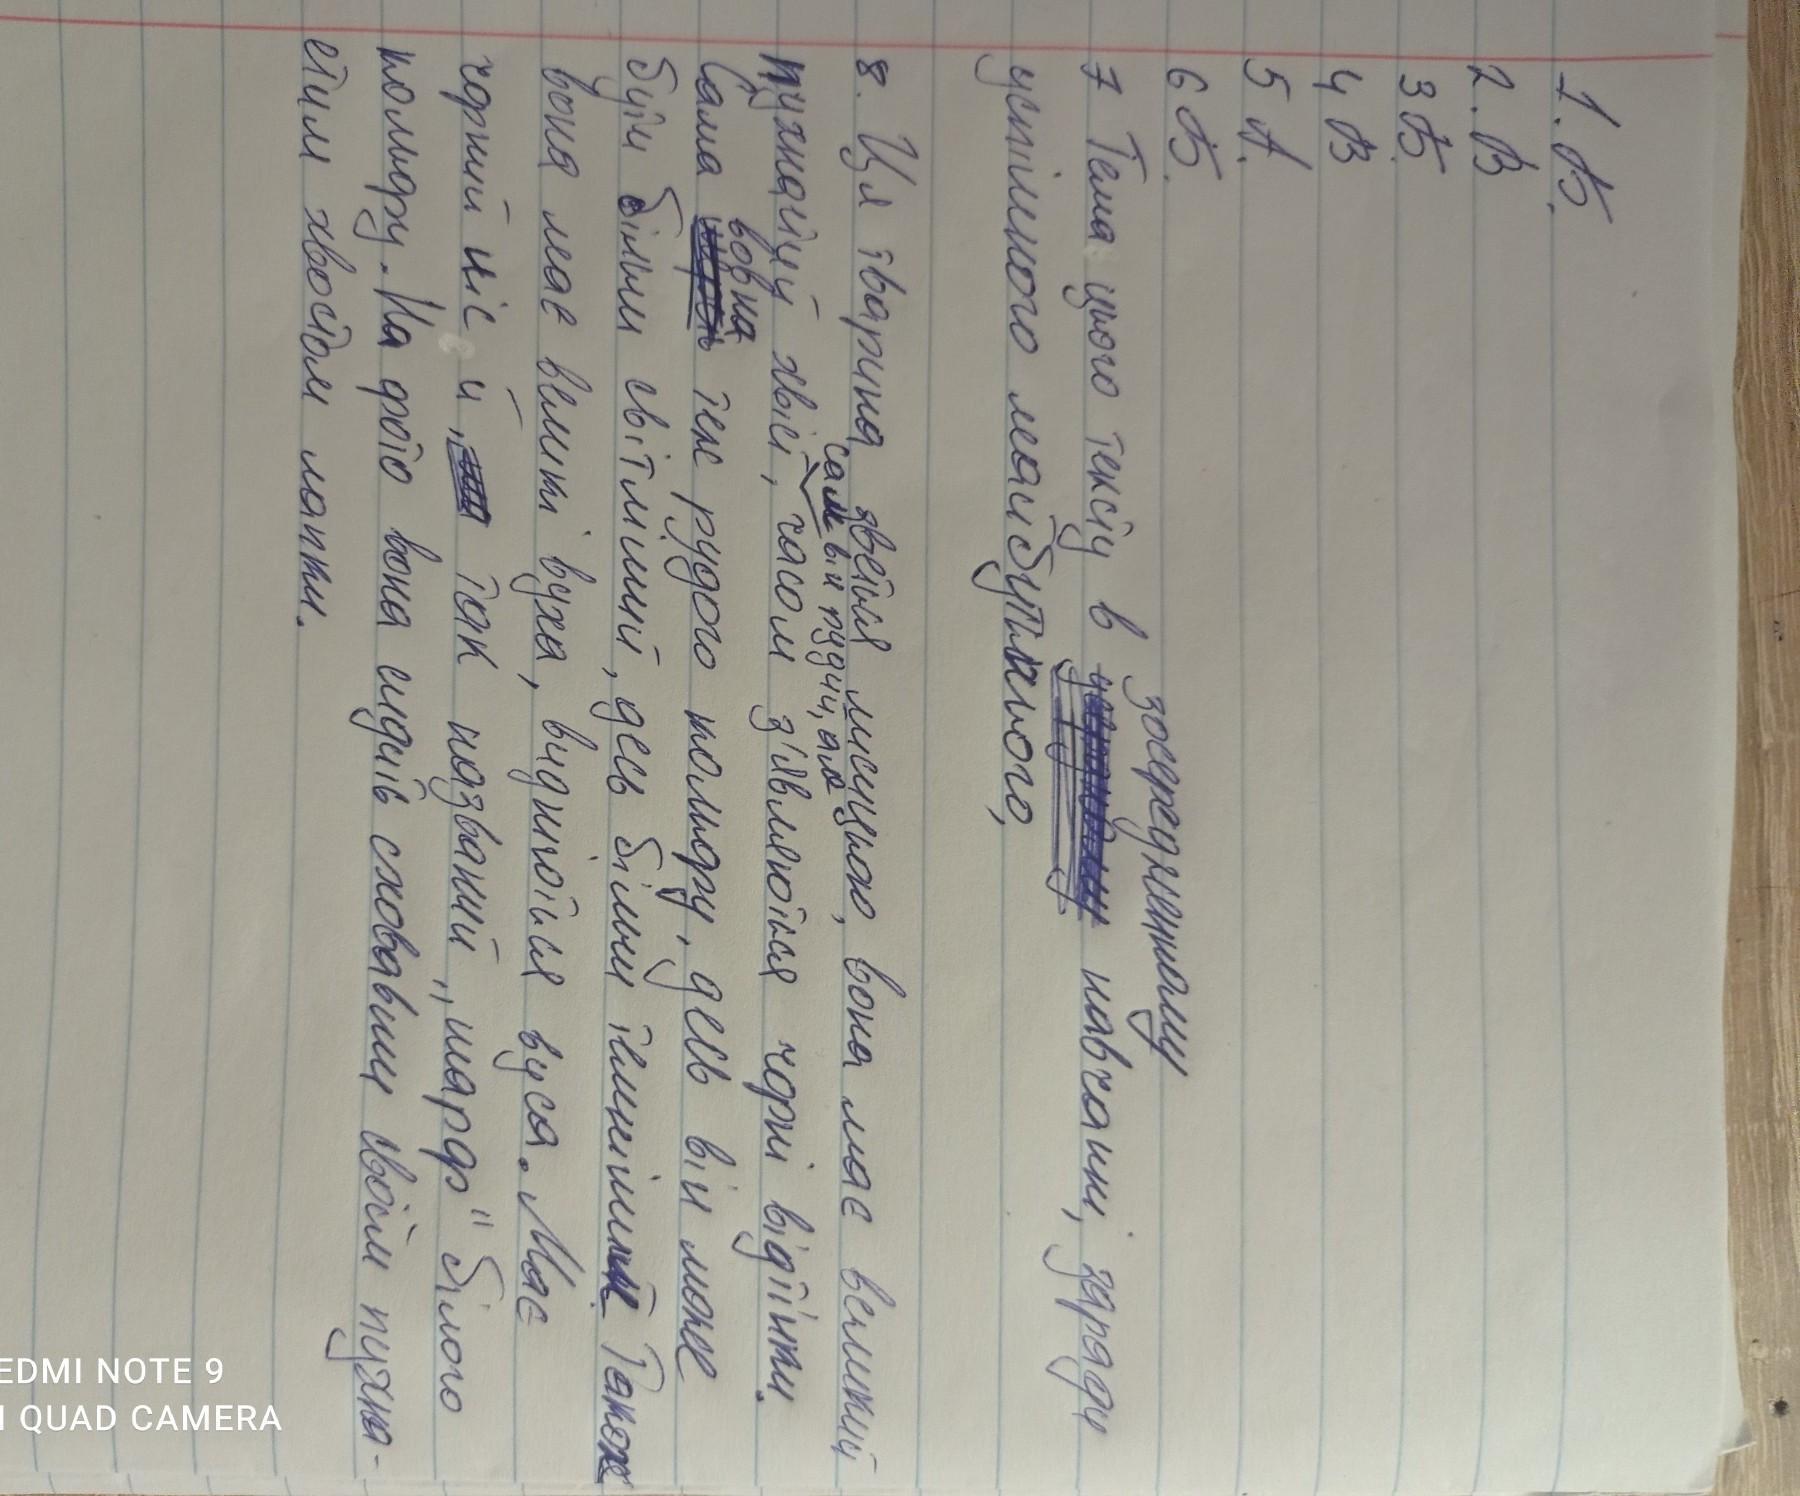 1. Б.
2. В
3 Б.
4 В
5 А.
6 Б.
7 Тема цього тексту в зосередженному навчанні, заради
успішного майбутнього,
8. Ця тварина зветься лисицею, вона має великий
пухнастий хвіст, сам він рудий, але часом з'являються чорні відтінки.
Сама вовна теж рудого кольору, десь він може
бути більш світліший, десь більш темніший. Також
вона має великі вуха, виднються вуса. Має
чорний ніс й, так названий „шарф" білого
кольору. На фото вона сидить сховавши своїм пухна-
стим хвостом лапки.
EDMI NOTE 9
I QUAD CAMERA